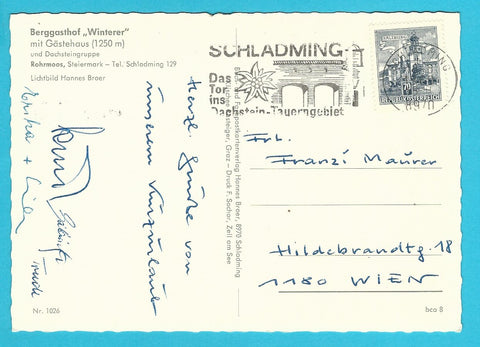 Berggasthof „Winterer"
mit Gästehaus (1250 m)
und Dachsteingruppe
Rohrmoos, Steiermark – Tel. Schladming 129
Lichtbild Hannes Broer
SCHLADMING
Das
Tor
ins
Dachstein-Tauerngebiet
REPUBLIK ÖSTERREICH
8970
Herzl. Grüße von
unserem Kurzurlaub
Bild und Fotopostkartenverlag Hannes Broer, 8970 Schladming
Graz – Druck F. Sochor, Zell am See
Frl.
Franzi Maurer
Hildebrandtg. 18
1180 WIEN
Nr. 1026
bca 8